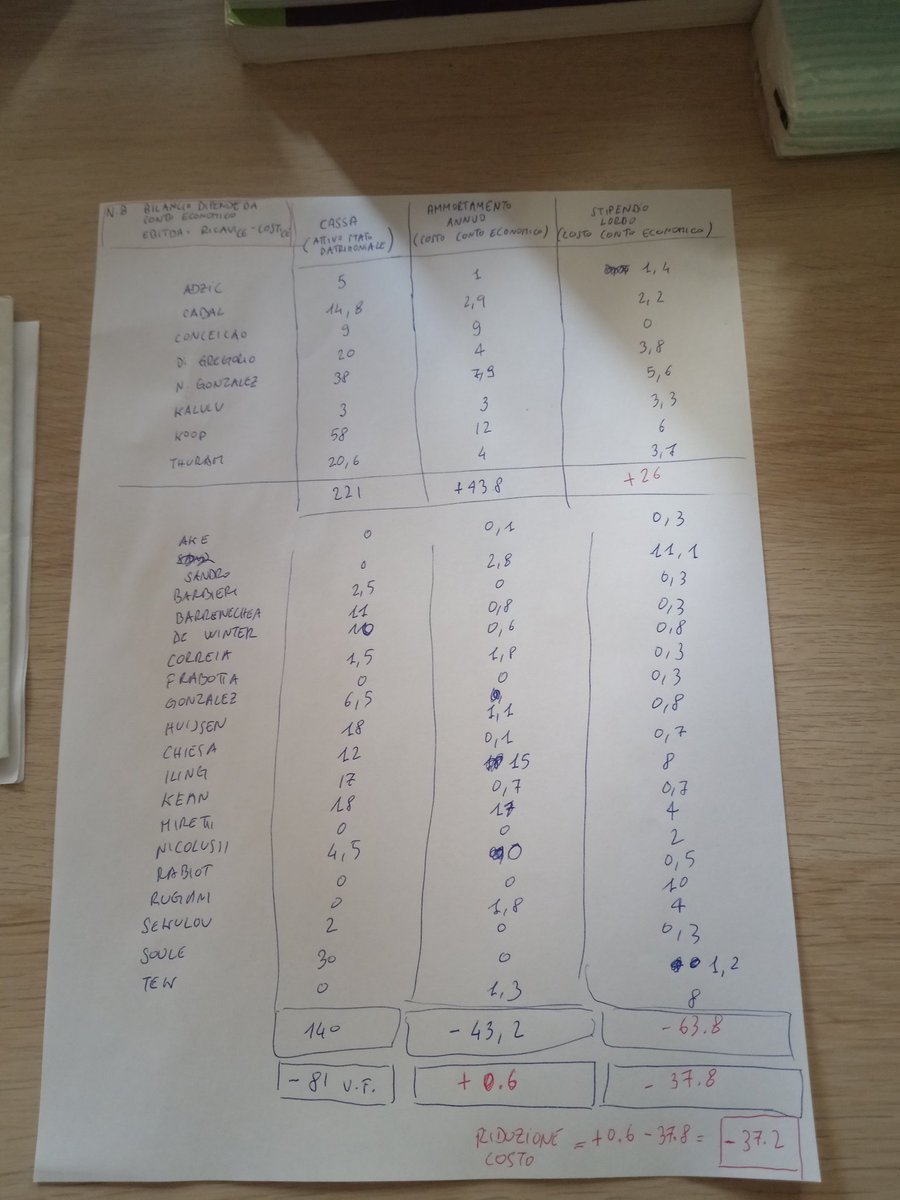 N.B BILANCIO DIPENDE DA
CONTO ECONOMICO
EBITDA = RICAVI CE - COSTI CE
CASSA
(ATTIVO STATO
PATRIMONIALE)
AMMORTAMENTO
ANNUO
(COSTO CONTO ECONOMICO)
STIPENDIO
LORDO
(COSTO CONTO ECONOMICO)
ADZIC 5 1 1,4
CABAL 14,8 2,9 2,2
CONCEICAO 9 9 0
DI GREGORIO 20 4 3,8
N. GONZALEZ 38 7,9 5,6
KALULU 3 3 3,3
KOOP 58 12 6
THURAM 20,6 4 3,7
221 +43.8 +26
AKE 0 0,1 0,3
SANDRO 0 2,8 11,1
BARBIERI 2,5 0 0,3
BARRENECHEA 11 0,8 0,3
DE WINTER 10 0,6 0,8
CORREIA 1,5 1,8 0,3
FRABOTTA 0 0 0,3
GONZALEZ 6,5 1,1 0,8
HUIJSEN 18 0,1 0,7
CHIESA 12 15 8
ILING 17 0,7 0,7
KEAN 18 17 4
MIRETTI 0 0 2
NICOLUSSI 4,5 0 0,5
RABIOT 0 0 10
RUGANI 0 1,8 4
SEKULOV 2 0 0,3
SOULE 30 0 1,2
TEK 0 1,3 8
140 -43,2 -63.8
-81 V.F. +0.6 -37.8
RIDUZIONE
COSTO = +0.6 -37.8 = -37.2